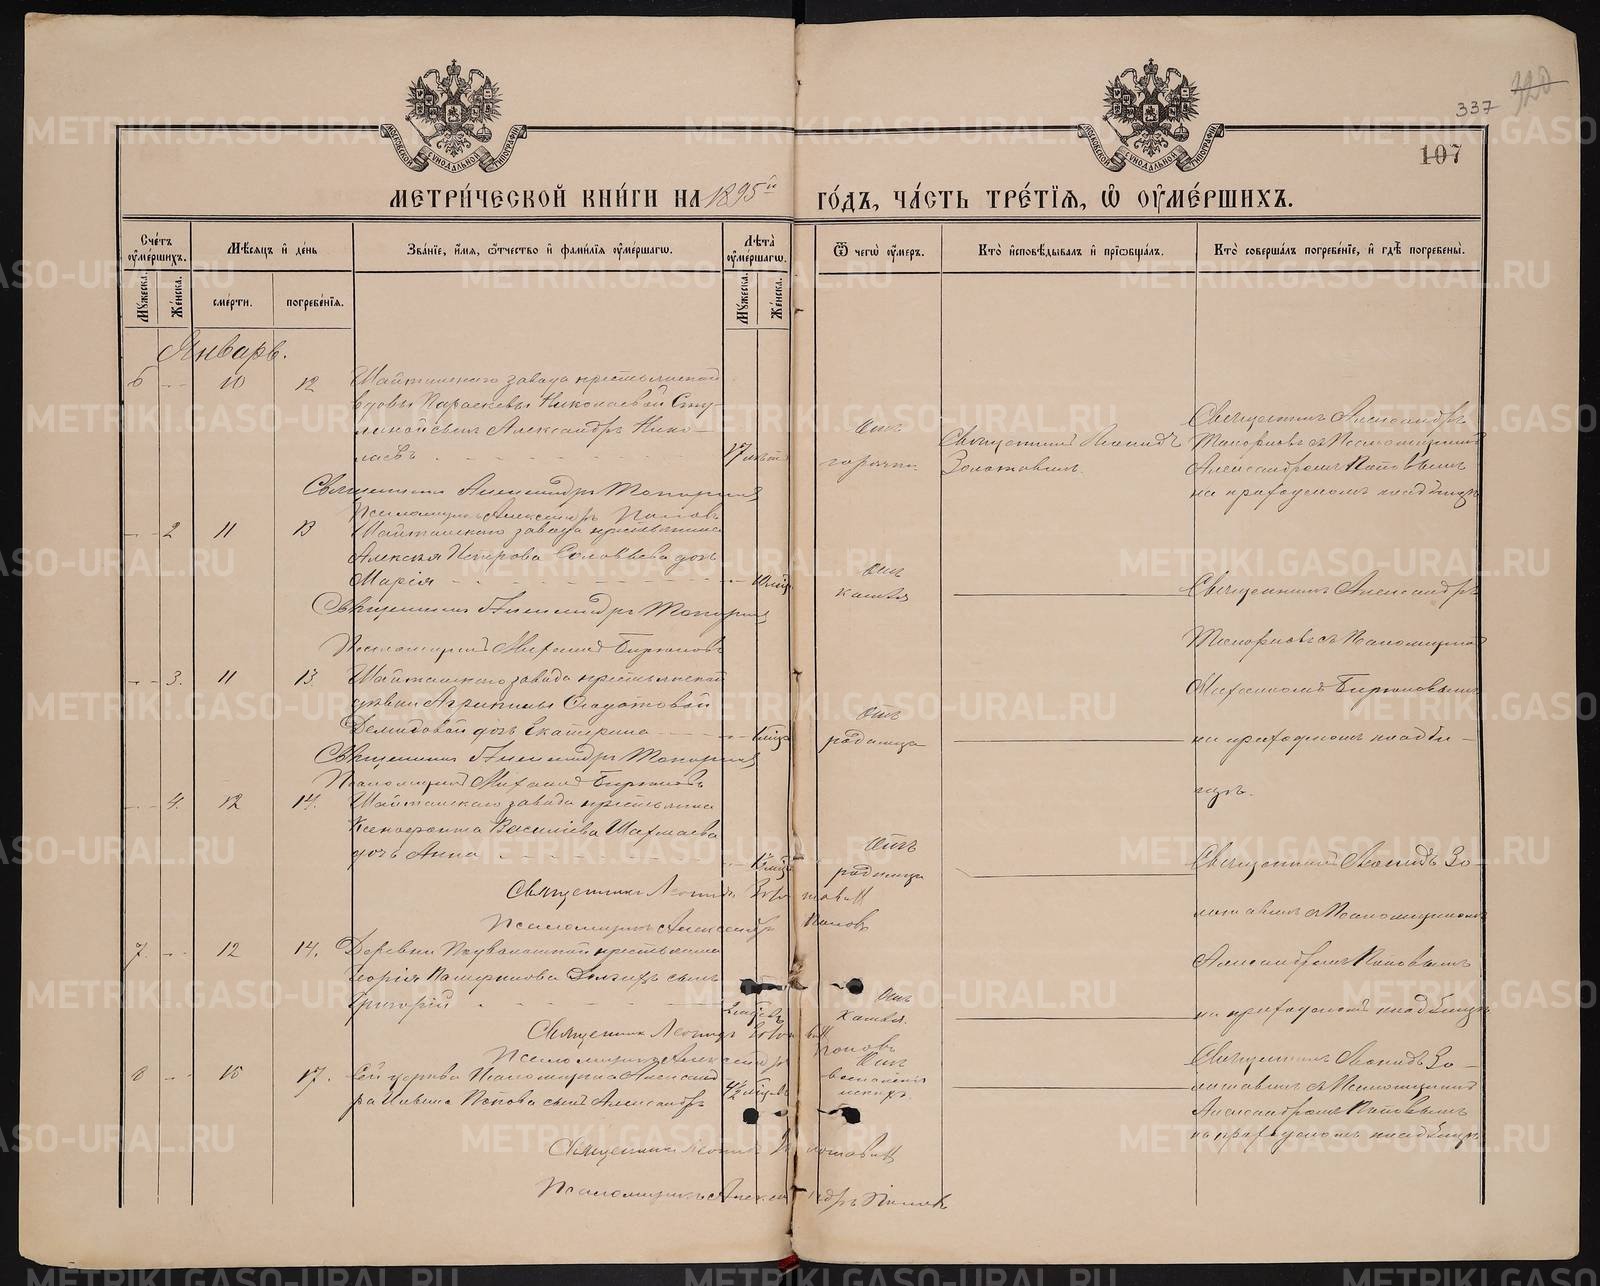 337 320
107
МОСКОВСКОЙ СѴНОДАЛЬНОЙ ТИПОГРАФІИ
МОСКОВСКОЙ СѴНОДАЛЬНОЙ ТИПОГРАФІИ
МЕТРИ́ЧЕСКОЙ КНИ́ГИ НА 1895й ГО́ДЪ, ЧА́СТЬ ТРЕ́ТІѦ, Ѡ҆ ОУ҆МЕ́РШИХЪ.
Сче́тъ оу҆ме́ршихъ.
Мꙋ́жеска.
Же́нска.
Мѣ́сѧцъ и҆ де́нь
сме́рти.
погребе́нїѧ.
Зва́нїе, и҆́мѧ, ѻ҆́тчество и҆ фами́лїѧ оу҆ме́ршагѡ.
Лѣ́та оу҆ме́ршагѡ.
Мꙋ́жеска.
Же́нска.
Ѿ чегѡ̀ оу҆́меръ.
Кто̀ и҆сповѣ́дывалъ и҆ прїѡбща́лъ.
Кто̀ соверша́лъ погребе́нїе, и҆ гдѣ̀ погребены̀.
Январь.
6 - 10 12 Шайтанскаго завода крестьянской
вдовы Параскевы Николаевой Сту-
сынъ Александръ Нико-
лаевъ 17 лѣтъ
Отъ горячки
Священникъ Леонидъ
Золотовинъ.
Священникъ Александръ
Топорковъ съ Псаломщикомъ
Александромъ Поповымъ
на приходскомъ кладбищѣ
Священникъ Александръ Топорковъ
Псаломщикъ Александръ Поповъ
- 2 11 13 Шайтанскаго завода крестьянина
Алексѣя Петрова Соловьева дочь
Марія
Отъ кашля
Священникъ Александръ
Топорковъ съ Псаломщикомъ
Михаиломъ Бирюковымъ
на приходскомъ кладби-
щѣ.
Священникъ Александръ Топорковъ
Псаломщикъ Михаилъ Бирюковъ
- 3. 11 13. Шайтанскаго завода крестьянской
дѣвки Агрипины
Демидовой дочь Екатерина
Отъ родимца
Священникъ Александръ Топорковъ
Псаломщикъ Михаилъ Бирюковъ
- 4. 12 14. Шайтанскаго завода крестьянина
Ксенофонта Василіева Шахмаева
дочь Анна
Отъ родимца
Священникъ Леонидъ Зо-
лотовинъ съ Псаломщикомъ
Александромъ Поповымъ
на приходскомъ кладбищѣ
Священникъ Леонидъ Золотовинъ
Псаломщикъ Александръ Поповъ
7. - 12 14. Деревни крестьянина
Георгія сынъ
Григорій
Отъ кашля.
Священникъ Леонидъ Золотовинъ
Псаломщикъ Александръ Поповъ
8 - 15 17. Сей церкви Псаломщика Александ
ра Попова сынъ Александръ 4½ мѣсяцъ
Отъ
Священникъ Леонидъ Зо-
лотовинъ съ Псаломщикомъ
Александромъ Поповымъ
на приходскомъ кладбищѣ
Священникъ Леонидъ Золотовинъ
Псаломщикъ Александръ Поповъ
METRIKI.GASO-URAL.RU